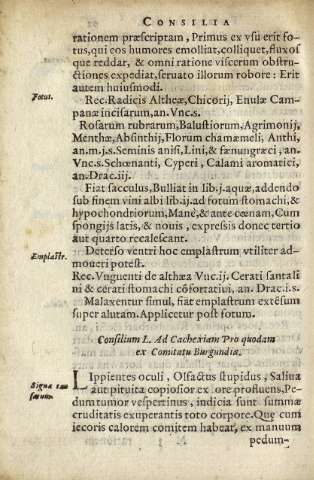 CONSILIA
rationem præscriptam, Primus ex vsu erit fo-
tus, qui eos humores emolliat, colliquet, fluxos
que reddat, & omni ratione viscerum obstru-
ctiones expediat, seruato illorum robore: Erit
autem huiusmodi.
Fotus.
Rec. Radicis Altheæ, Chicorij, Enulæ Cam-
panæ incisarum, an. Vnc. s.
Rosarum rubrarum, Balustiorum, Agrimonij,
Menthæ, Absinthij, Florum chamæmeli, Anthi,
an. m. j. s. Seminis anisi, Lini, & fænugræci, an.
Vnc. s. Schœnanti, Cyperi, Calami aromatici,
an. Drac. iij.
Fiat sacculus, Bulliat in lib. j. aquæ, addendo
sub finem vini albi lib. ij. ad fotum stomachi, &
hypochondriorum, Manè, & ante cœnam, Cum
spongijs latis, & nouis, expressis donec tertio
aut quarto recalescant.
Emplastr.
Deterso ventri hoc emplastrum vtiliter ad-
moueri potest.
Rec. Vnguenti de althæa Vnc. ij. Cerati santali
ni & cerati stomachi cōfortatiui, an. Drac. i. s.
Malaxentur simul, fiat emplastrum extēsum
super alutam. Applicetur post fotum.
Consilium L. Ad Cachexiam Pro quodam
ex Comitatu Burgundiæ.
Signa cau
sarum.
LIppientes oculi, Olfactus stupidus, Saliua
aut pituita copiosior ex ore profluens, Pe-
dum tumor vespertinus, indicia sunt summæ
cruditatis exuperantis toto corpore. Quę cum
iecoris calorem comitem habeat, ex manuum
pedum-